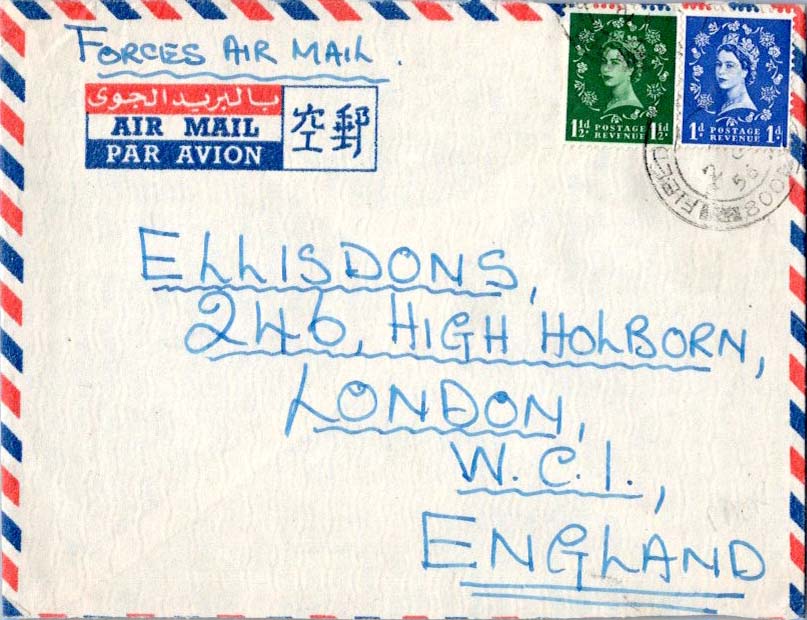 FORCES AIR MAIL.
بالبريد الجوى
AIR MAIL
PAR AVION
空郵
1½d. POSTAGE REVENUE 1½d.
1d. POSTAGE REVENUE 1d.
FIELD
56
ELLISDONS,
246, HIGH HOLBORN,
LONDON,
W.C.1.,
ENGLAND